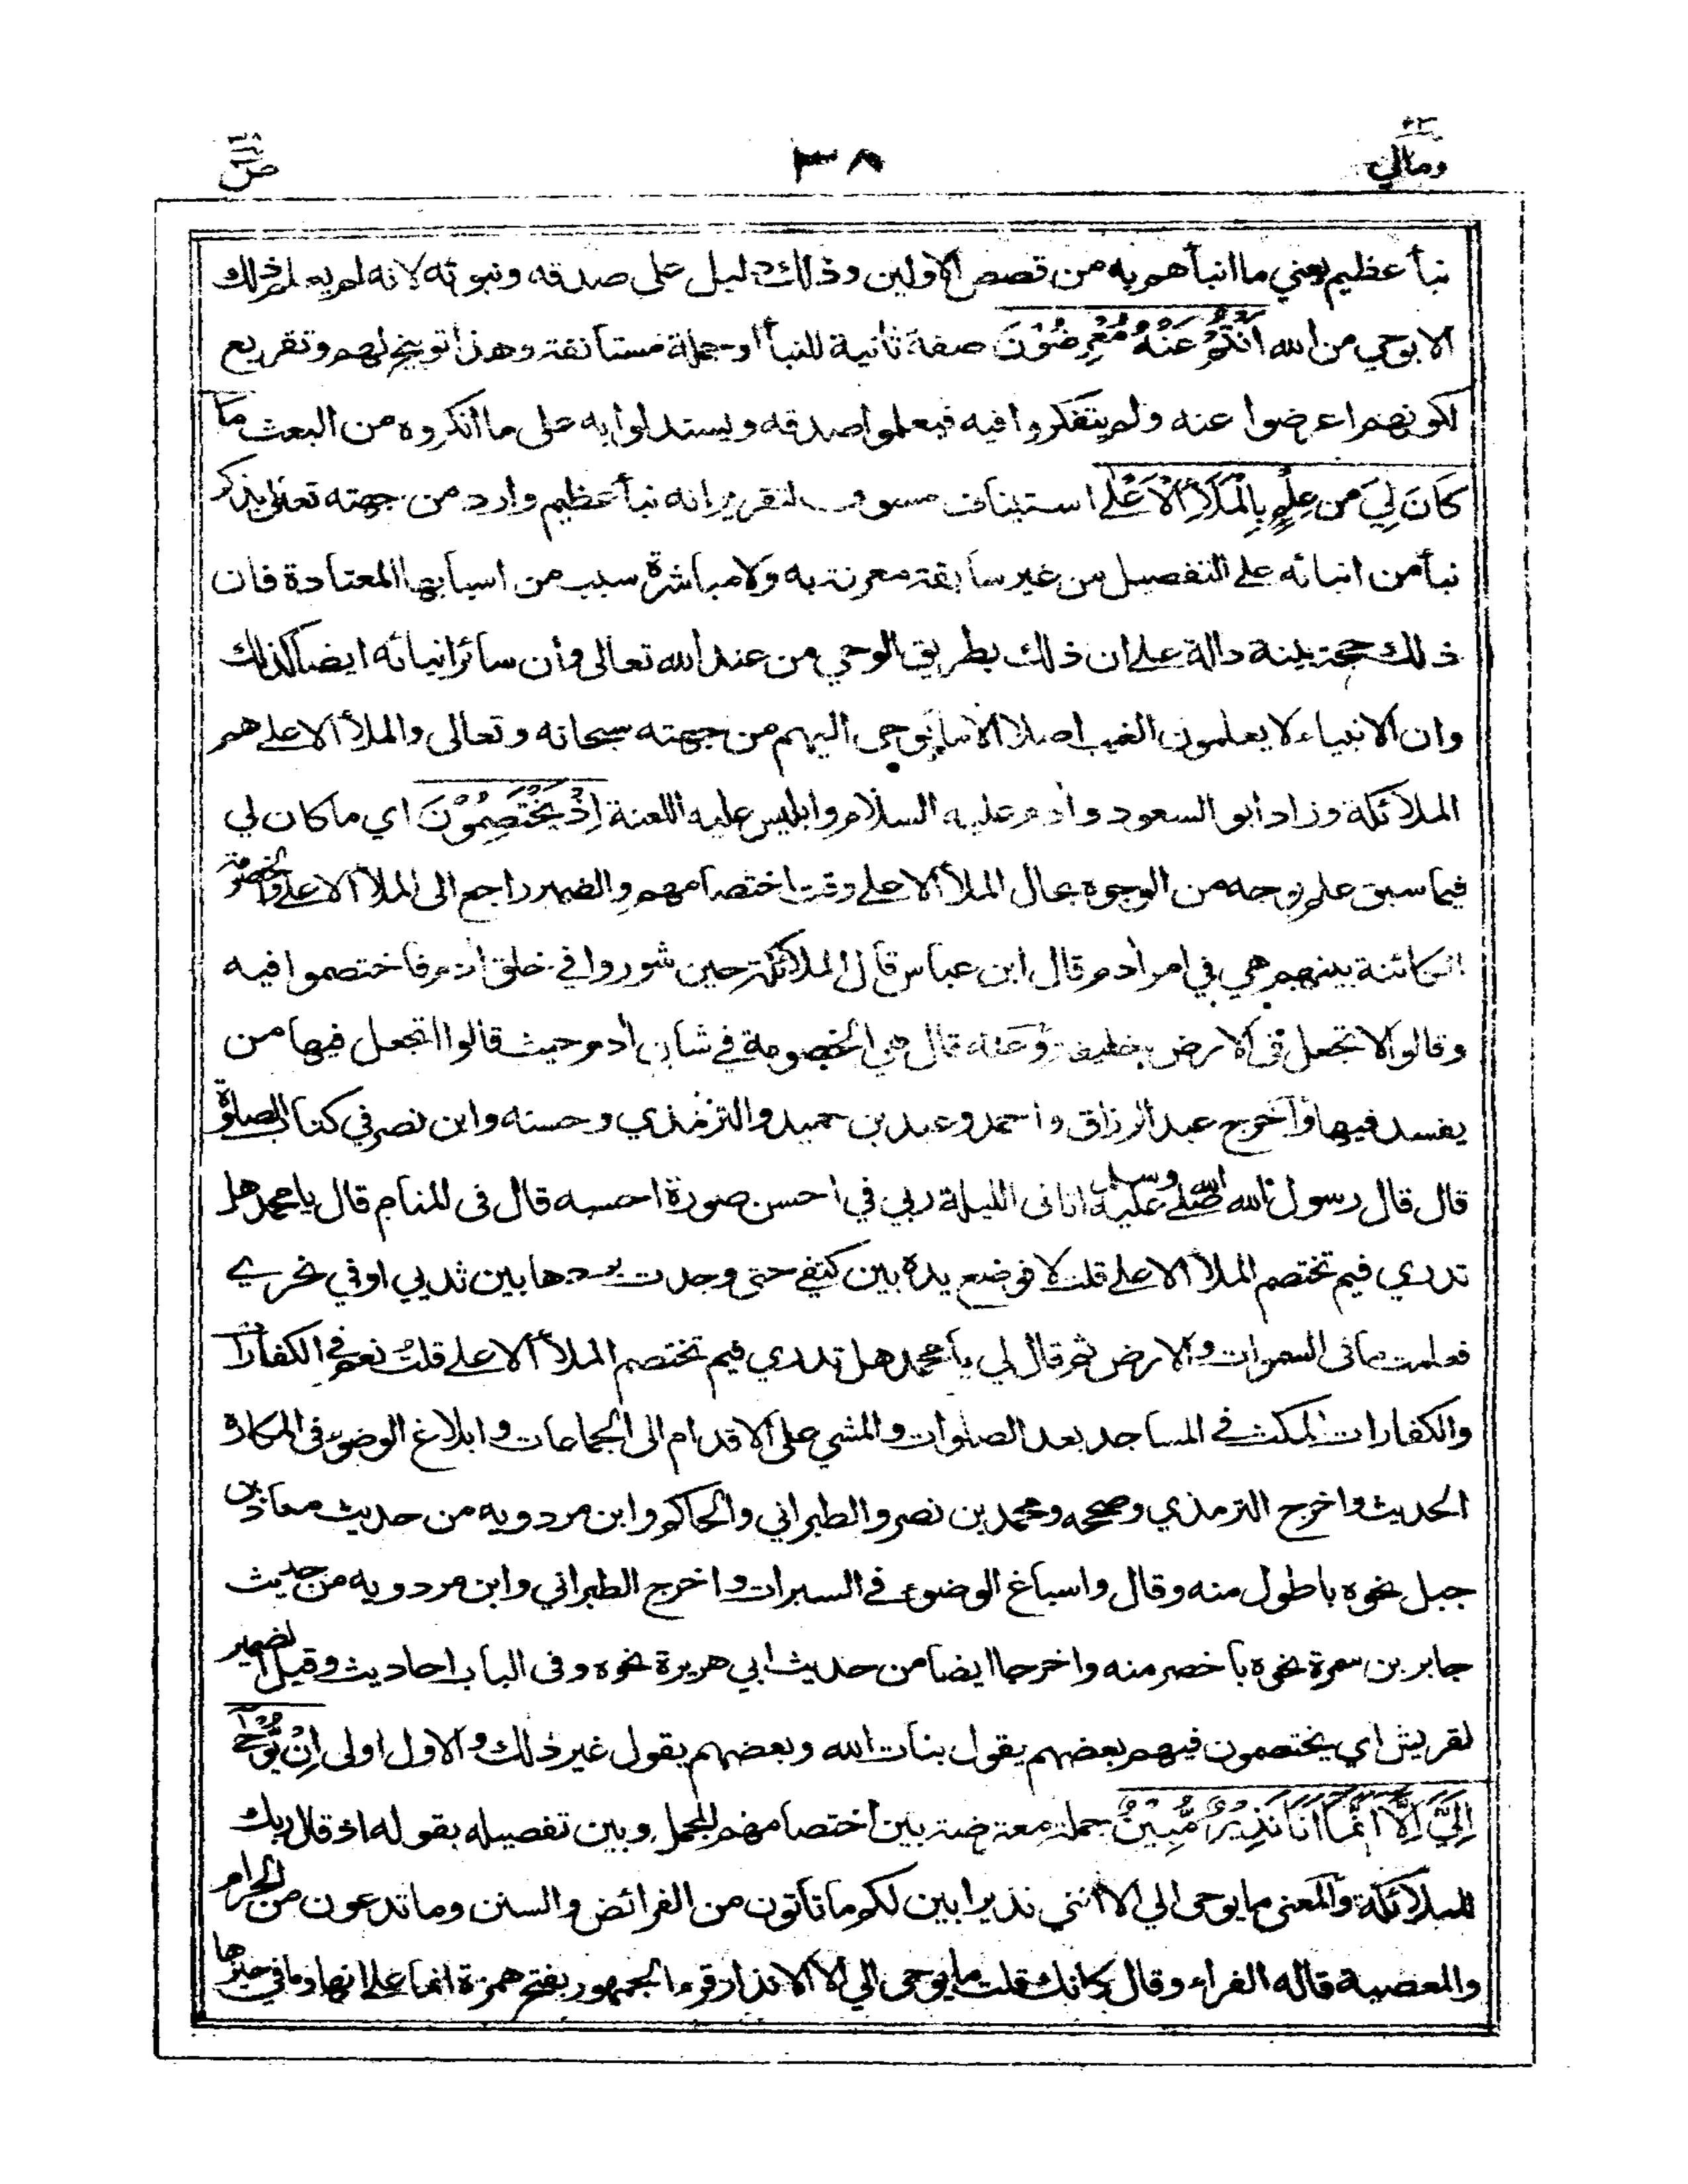 ومالي ٢٣
٣٨
ص
نبأ عظيم يعني ما انبأهم به من قصص الاولين وذلك دليل على صدقه ونبوته لانه لم يعلم ذلك
الا بوحي من الله اَنْتُمْ عَنْهُ مُعْرِضُوْنَ صفة ثانية للنبأ او جملة مستأنفة وهذا توبيخ لهم وتقريع
لكونهم اعرضوا عنه ولم يتفكروا فيه فيعلموا صدقه ويستدلوا به على ما انكروه من البعث مَا
كَانَ لِيَ مِن عِلْمٍ بِالْمَلَاِ الْاَعْلٰى استيناف مسوق لتقرير انه نبأ عظيم وارد من جهته تعالى بذكر
نبأ من انبائه على التفصيل من غير سابقة معرفة به ولا مباشرة سبب من اسبابها المعتادة فان
ذلك حجة بينة دالة على ان ذلك بطريق الوحي من عند الله تعالى وأن سائر انبائه ايضا كذلك
وان الانبياء لا يعلمون الغيب اصلا الا ما يوحى اليهم من جهته سبحانه وتعالى والملأ الاعلى هم
الملائكة وزاد ابو السعود وأدم عليه السلام وابليس عليه اللعنة اِذْ يَخْتَصِمُوْنَ اي ما كان لي
فيما سبق علم بوجه من الوجوه بحال الملأ الاعلى وقت اختصامهم والضمير راجع الى الملأ الاعلى والخصومة
الكائنة بينهم هي في امر ادم قال ابن عباس قال الملائكة حين شوروا في خلق ادم فاختصموا فيه
وقالوا لا تجعل في الارض خليفة وعنه قال هي الخصومة في شان أدم حيث قالوا اتجعل فيها من
يفسد فيها وأخرج عبد الرزاق واحمد وعبد بن حميد والترمذي وحسنه وابن نصر في كتاب الصلوة
قال قال رسول الله صلى الله عليه وسلم اتانى الليلة ربي في احسن صورة احسبه قال فى المنام قال يا محمد هل
تدري فيم تختصم الملأ الاعلى قلت لا فوضع يده بين كتفي حتى وجدت بردها بين ثديي او في نحري
فعلمت ما فى السموات والارض ثم قال لي يا محمد هل تدري فيم تختصم الملأ الاعلى قلت نعم في الكفارات
والكفارات المكث في المساجد بعد الصلوات والمشي على الاقدام الى الجماعات وابلاغ الوضوء فى المكاره
الحديث واخرج الترمذي وصححه ومحمد بن نصر والطبراني والحاكم وابن مردويه من حديث معاذ بن
جبل نحوه باطول منه وقال واسباغ الوضوء في السبرات واخرج الطبراني وابن مردويه من حديث
جابر بن سمرة نحوه بأخصر منه واخرجا ايضا من حديث ابي هريرة نحوه وفى الباب احاديث وقيل الضمير
لقريش اي يختصمون فيهم بعضهم يقول بنات الله وبعضهم يقول غير ذلك والاول اولى اِنْ يُّوْحٰى
اِلَيَّ اِلَّا اَنَّمَا اَنَا نَذِيْرٌ مُّبِيْنٌ جملة معترضة بين اختصامهم المجمل وبين تفصيله بقوله اذ قال ربك
للملائكة والمعنى ما يوحى الي الا انني نذير ابين لكم ما تأتون من الفرائض والسنن وما تدعون من الحرام
والمعصية قاله الفراء وقال كانك قلت ما يوحى الي الا الانذار قرء الجمهور بفتح همزة انما على انها وما في حيزها